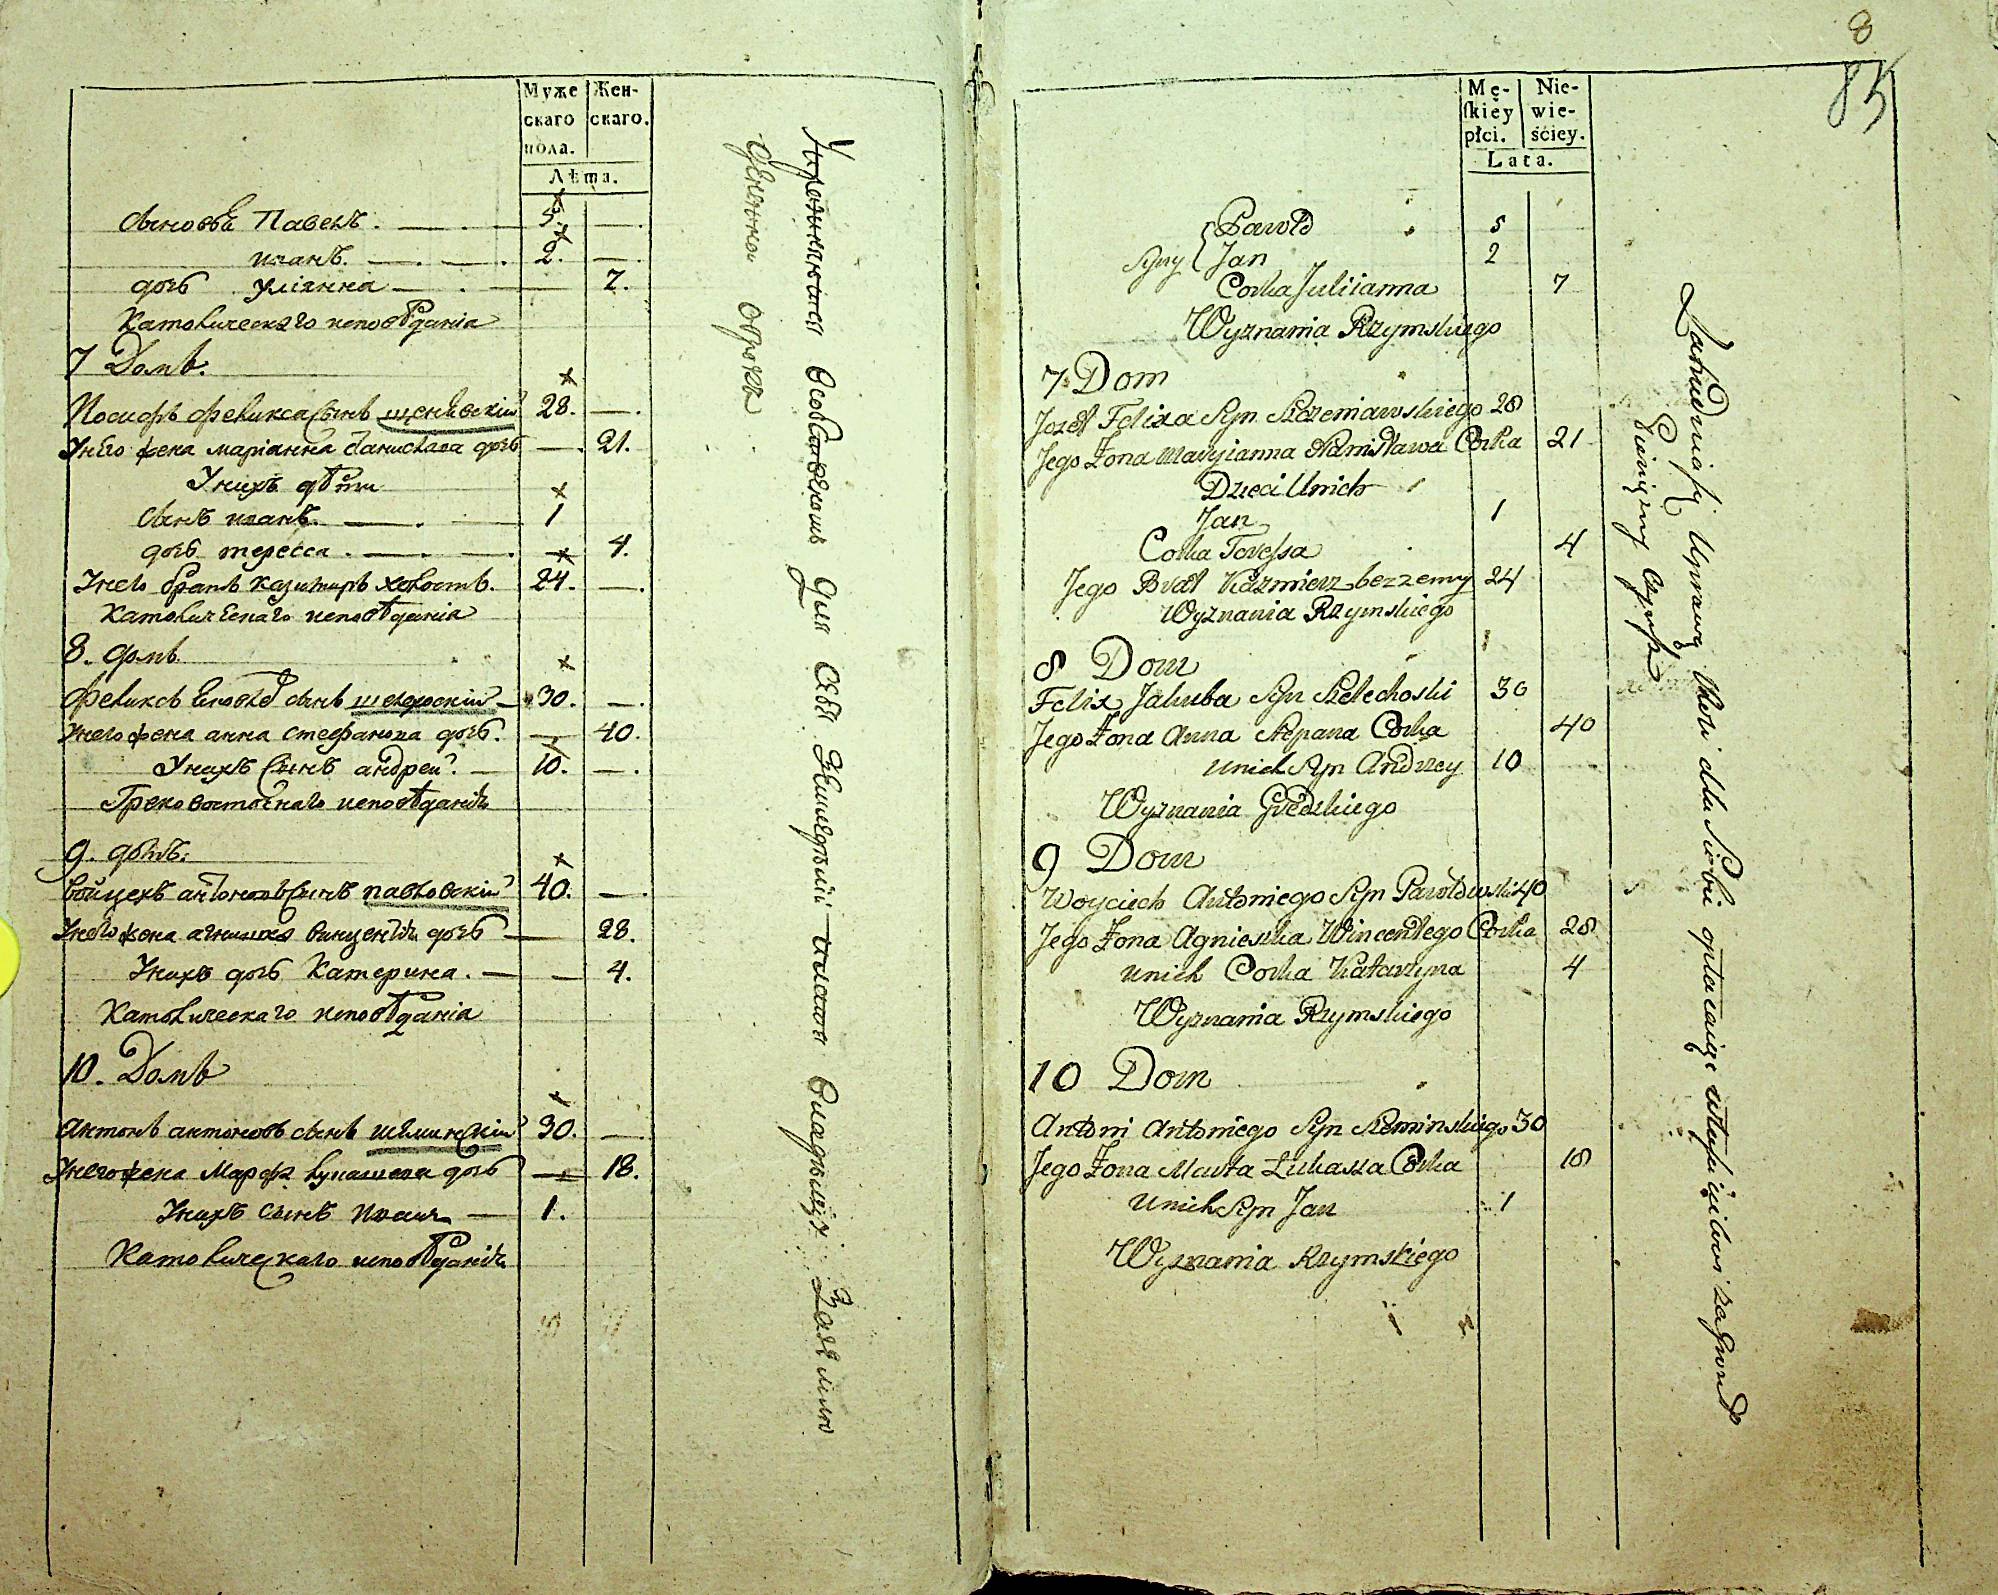 Муже
скаго
пола.
Жен-
скаго.
Лѣта.
сыновья Павелъ. 5.
иванъ. 2.
дочь улiянна 7.
Католическаго исповѣданiя
7 Домъ.
Иосифъ феликса сынъ щенявскiй 28.
У него жена марiанна станислава дочь 21.
У нихъ дѣти
сынъ иванъ. 1
дочь тересса. 4.
У него братъ казимиръ холостъ. 24.
Католическаго исповѣданiя
8. домъ
феликсъ сынъ шелехоскiй 30.
У него жена анна степанова дочь. 40.
У нихъ сынъ андрей. 10.
Греко восточнаго исповѣданiя
9. домъ.
войцехъ антоновъ сынъ павловскiй 40.
У него жена агнишка винцентiя дочь 28.
У нихъ дочь Катерина. 4.
Католическаго исповѣданiя
10. Домъ
Антонъ антоновъ сынъ шеминскiй 30.
У него жена Марфа лукашева дочь 18.
У нихъ сынъ иванъ 1.
Католическаго исповѣданiя
для себя владѣющiй землею
8
85
Mę-
skiey
płci.
Nie-
wie-
ściey.
Lata.
Paweł 5
Syny Jan 2
Corka Juliianna 7
Wyznania Rzymskiego
7 Dom
Jozef Felixa Syn Szczeniawskiego 28
Jego Zona Maryianna Stanisława Corka 21
Dzieci Unich
Jan 1
Corka Teressa 4
Jego Brat Kazmierz bezzenny 24
Wyznania Rzymskiego
8 Dom
Felix Jakuba Syn Szelechoski 30
Jego Zona Anna Stepana Corka 40
Unich Syn Andrzey 10
Wyznania Greckiego
9 Dom
Woyciech Antoniego Syn Pawłowski 40
Jego Zona Agnieszka Wincentego Corka 28
Unich Corka Katarzyna 4
Wyznania Rzymskiego
10 Dom
Antoni Antoniego Syn Szeminskiego 30
Jego Zona Marta Łukasza Corka 18
Unich Syn Jan 1
Wyznania Rzymskiego
Zatrudniaią Uprawą Roli dla Siebie opłacaiąc
Pieniężny Czynsz